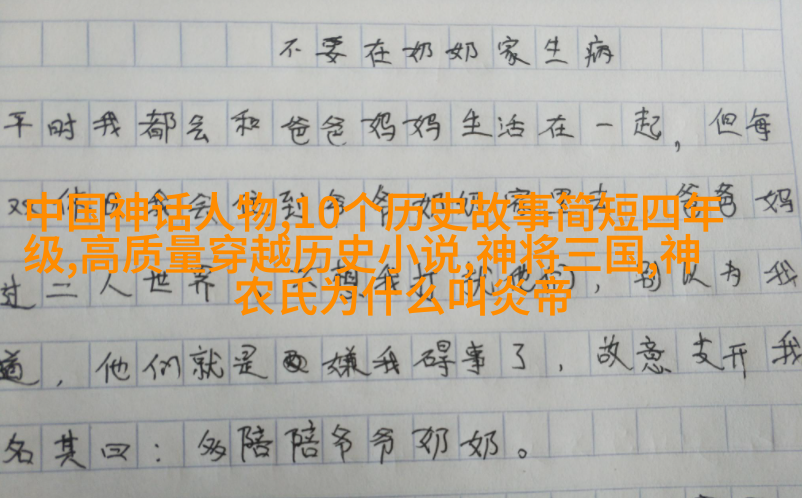 不要在奶奶家生病
平时我都会和爸爸妈妈生活在一起，但每
中国神话人物,10个历史故事简短四年
级,高质量穿越历史小说,神将三国,神
农氏为什么叫炎帝
爸爸妈
过二人世界
别以为我
道，他们就是嫌我碍事了，故意支开我
名其曰：多陪陪爷爷奶奶。